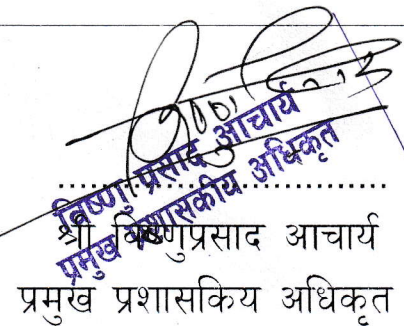 विष्णु प्रसाद आचार्य
प्रमुख प्रशासकीय अधिकृत
श्री विष्णुप्रसाद आचार्य
प्रमुख प्रशासकिय अधिकृत